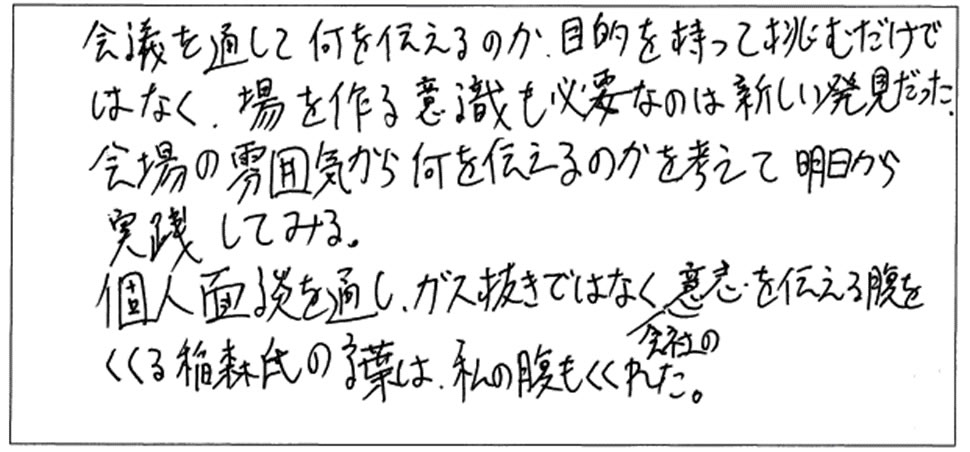 会議を通して何を伝えるのか、目的を持って挑むだけで
はなく、場を作る意識も必要なのは新しい発見だった。
会場の雰囲気から何を伝えるのかを考えて明日から
実践してみる。
個人面談を通し、ガス抜きではなく会社の意志を伝える腹を
くくる稲森氏の言葉は、私の腹もくくれた。